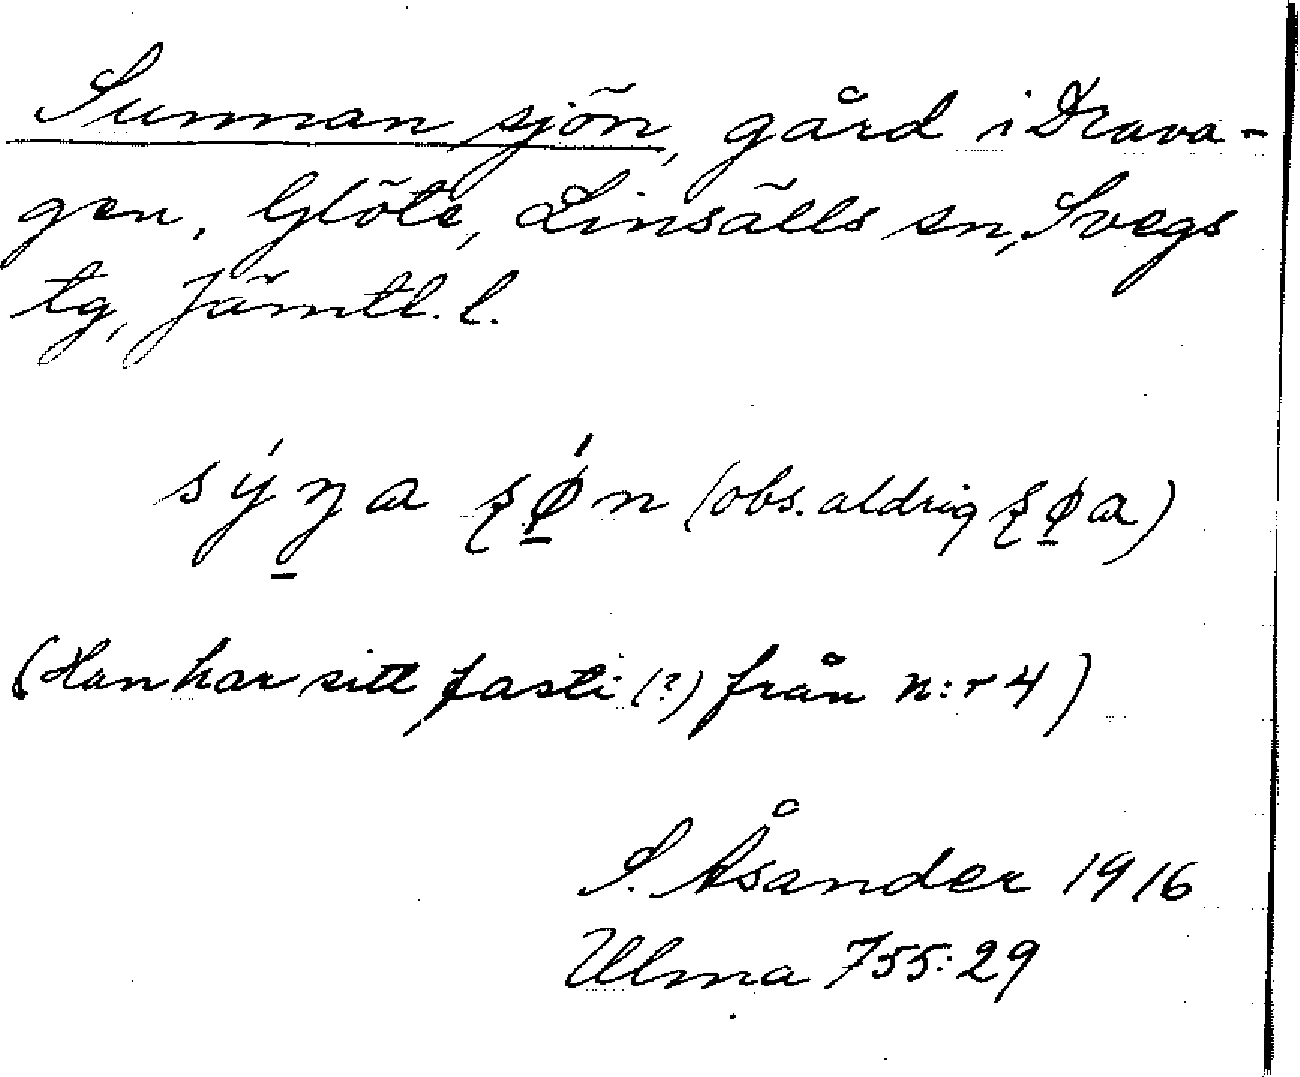 Sunnan sjön, gård i Drava-
gen, Glöte, Linsälls sn, Svegs
tg, Jämtl. l.
sýŋa ʂǿ̱n (obs. aldrig ʂø̱a)
(Han har sitt fasti (?) från n:r 4)
S. Åsander 1916
Ulma 755:29